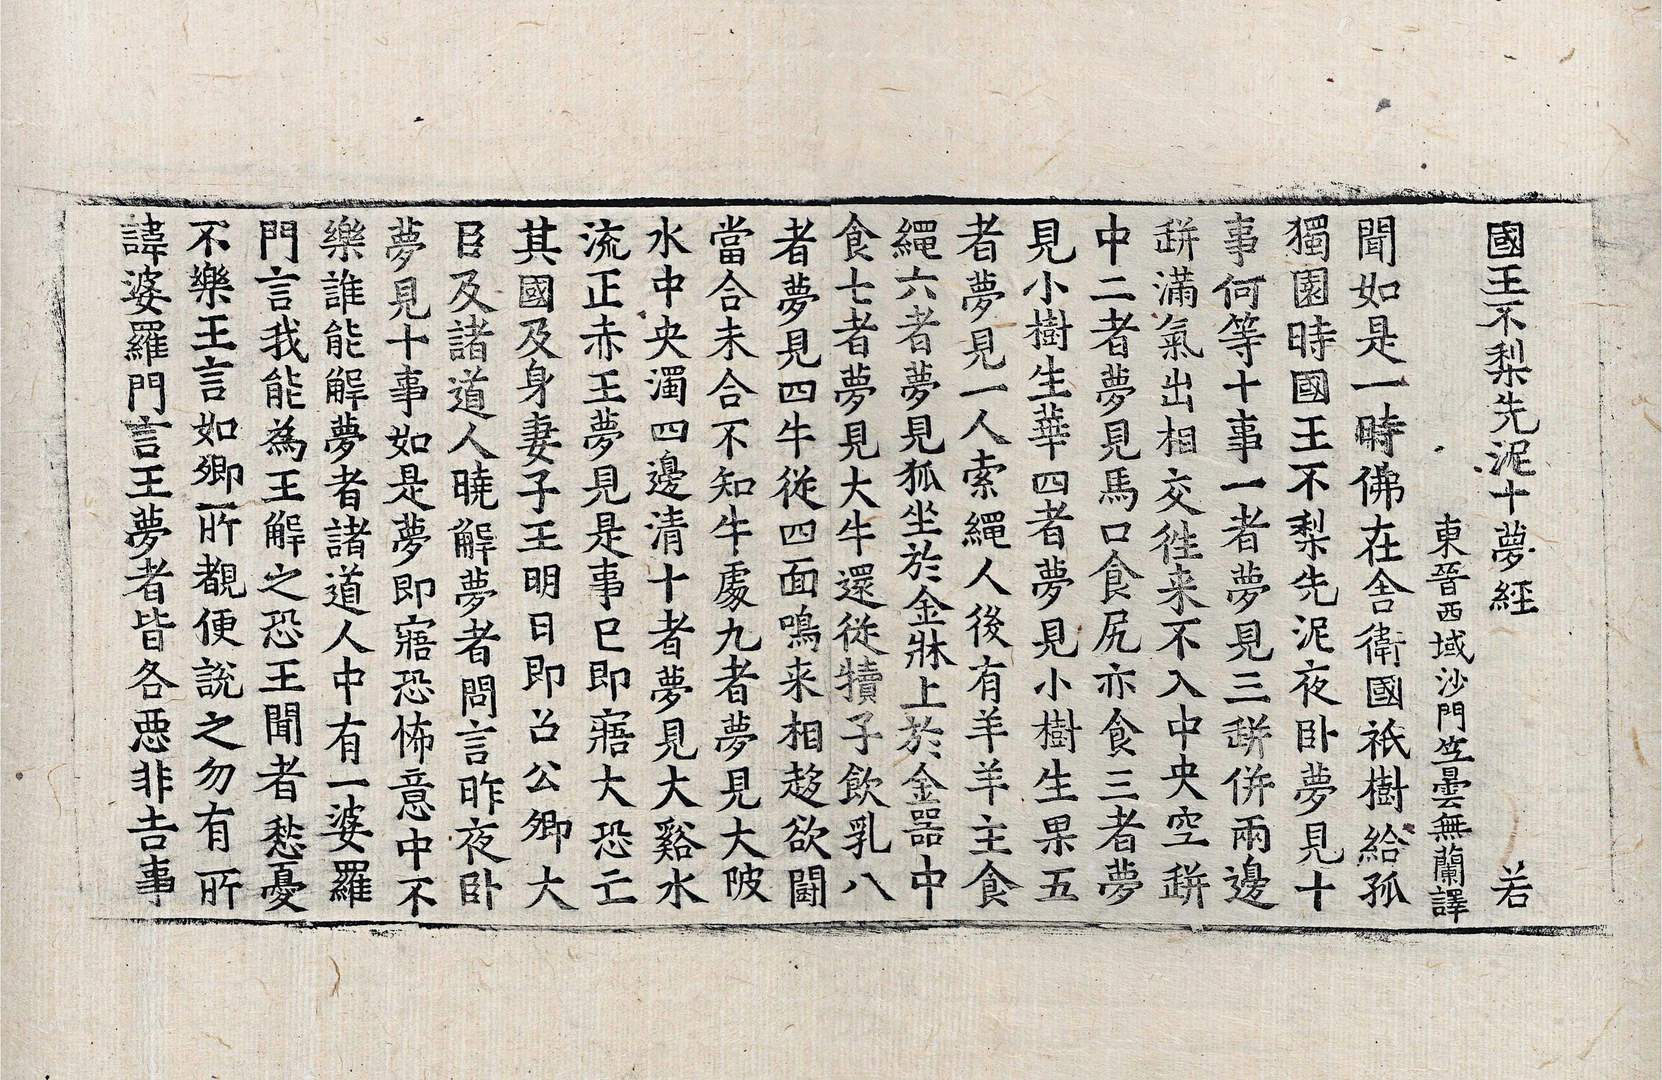 國王不梨先泥十夢經　若
東晉西域沙門竺曇無蘭譯
聞如是一時佛在舍衛國祇樹給孤
獨園時國王不梨先泥夜卧夢見十
事何等十事一者夢見三缾併兩邊
缾滿氣出相交徃来不入中央空缾
中二者夢見馬口食尻亦食三者夢
見小樹生華四者夢見小樹生果五
者夢見一人索繩人後有羊羊主食
繩六者夢見狐坐於金牀上於金器中
食七者夢見大牛還從犢子飲乳八
者夢見四牛從四面鳴来相趍欲鬪
當合未合不知牛處九者夢見大陂
水中央濁四邊清十者夢見大谿水
流正赤王夢見是事已即寤大恐亡
其國及身妻子王明日即召公卿大
臣及諸道人曉解夢者問言昨夜卧
夢見十事如是夢即寤恐怖意中不
樂誰能解夢者諸道人中有一婆羅
門言我能為王解之恐王聞者愁憂
不樂王言如卿所覩便說之勿有所
諱婆羅門言王夢者皆各惡非吉事